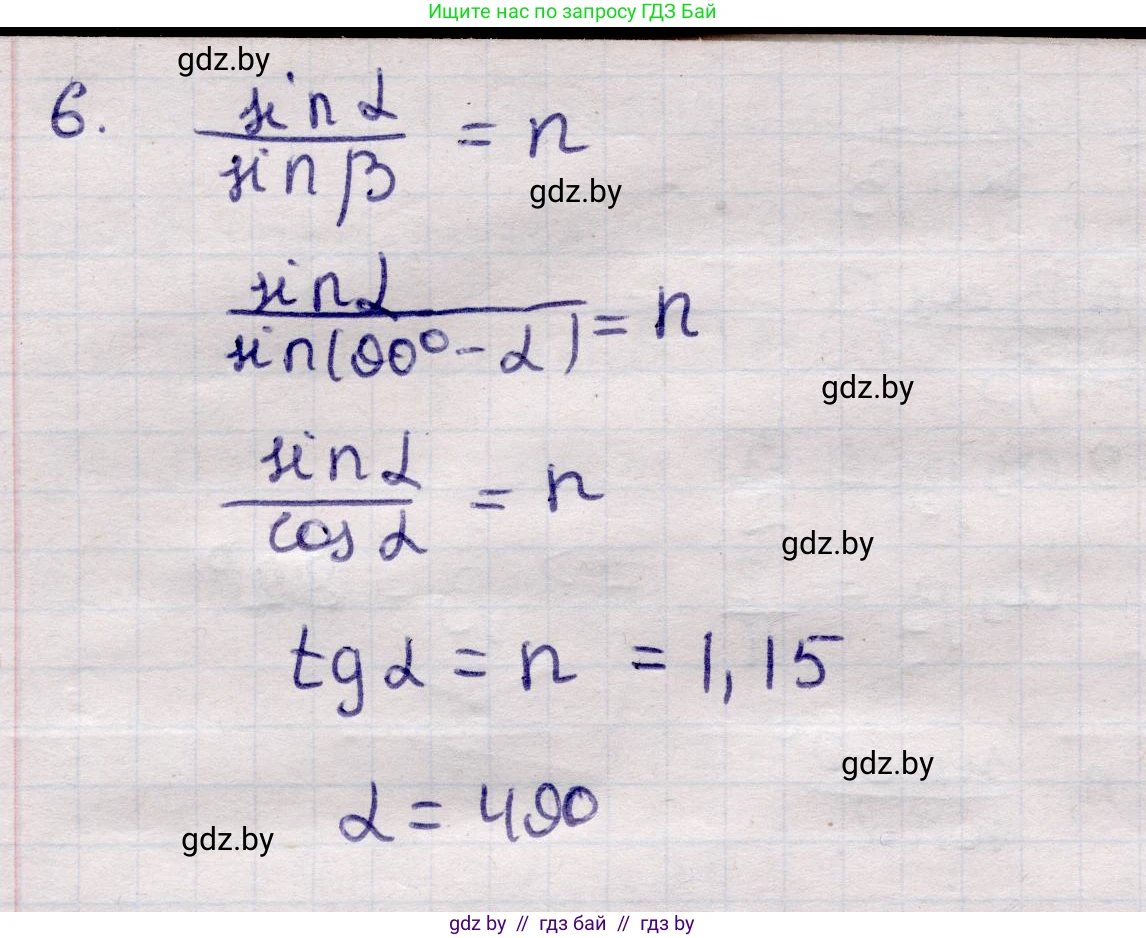 Ищите нас по запросу ГДЗ Бай
gdz.by
6. sin α / sin β = n
gdz.by
sin α / sin(90° - α) = n
gdz.by
sin α / cos α = n
gdz.by
tg α = n = 1,15
gdz.by
α = 490
gdz.by
gdz by // гдз бай // гдз by